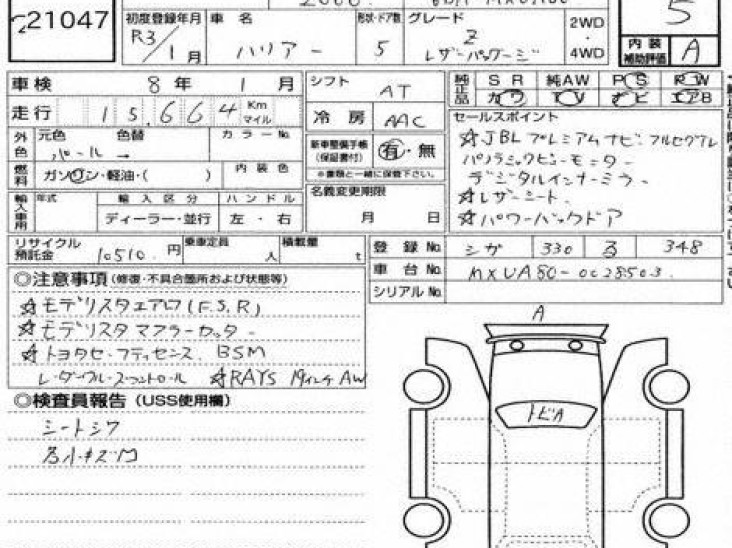 21047
初度登録年月 車名 形状・ドア数 グレード 2WD・4WD 5
R3/1月 ハリアー 5 Z レザーパッケージ
内装補助評価 A
車検 8年 1月 シフト AT
純正品 SR 純AW PS PW カワ TV ナビ エアB
走行 15,664 Km マイル 冷房 AAC
セールスポイント
外色 元色 色替 カラーNo.
パール →
新車整備手帳(保証書付) 有・無
※書類と一緒に保管下さい。
☆JBLプレミアムナビ フルセグTV
パノラミックビューモニター
デジタルインナーミラー
☆レザーシート
☆パワーバックドア
燃料 ガソリン・軽油・( ) 内装色
名義変更期限 月 日
輸入車用 年式 輸入区分 ハンドル
ディーラー・並行 左・右
リサイクル預託金 10510円 乗車定員 人 積載量 t
登録No. シガ 330 る 348
車台No. MXUA80-0028503
シリアルNo.
◎注意事項(修復・不具合箇所および状態等)
☆モデリスタエアロ(F.S.R)
☆モデリスタマフラーカッター
☆トヨタセーフティセンス. BSM
レーダークルーズコントロール ☆RAYS 19インチAW
◎検査員報告(USS使用欄)
シートシワ
A
トビA